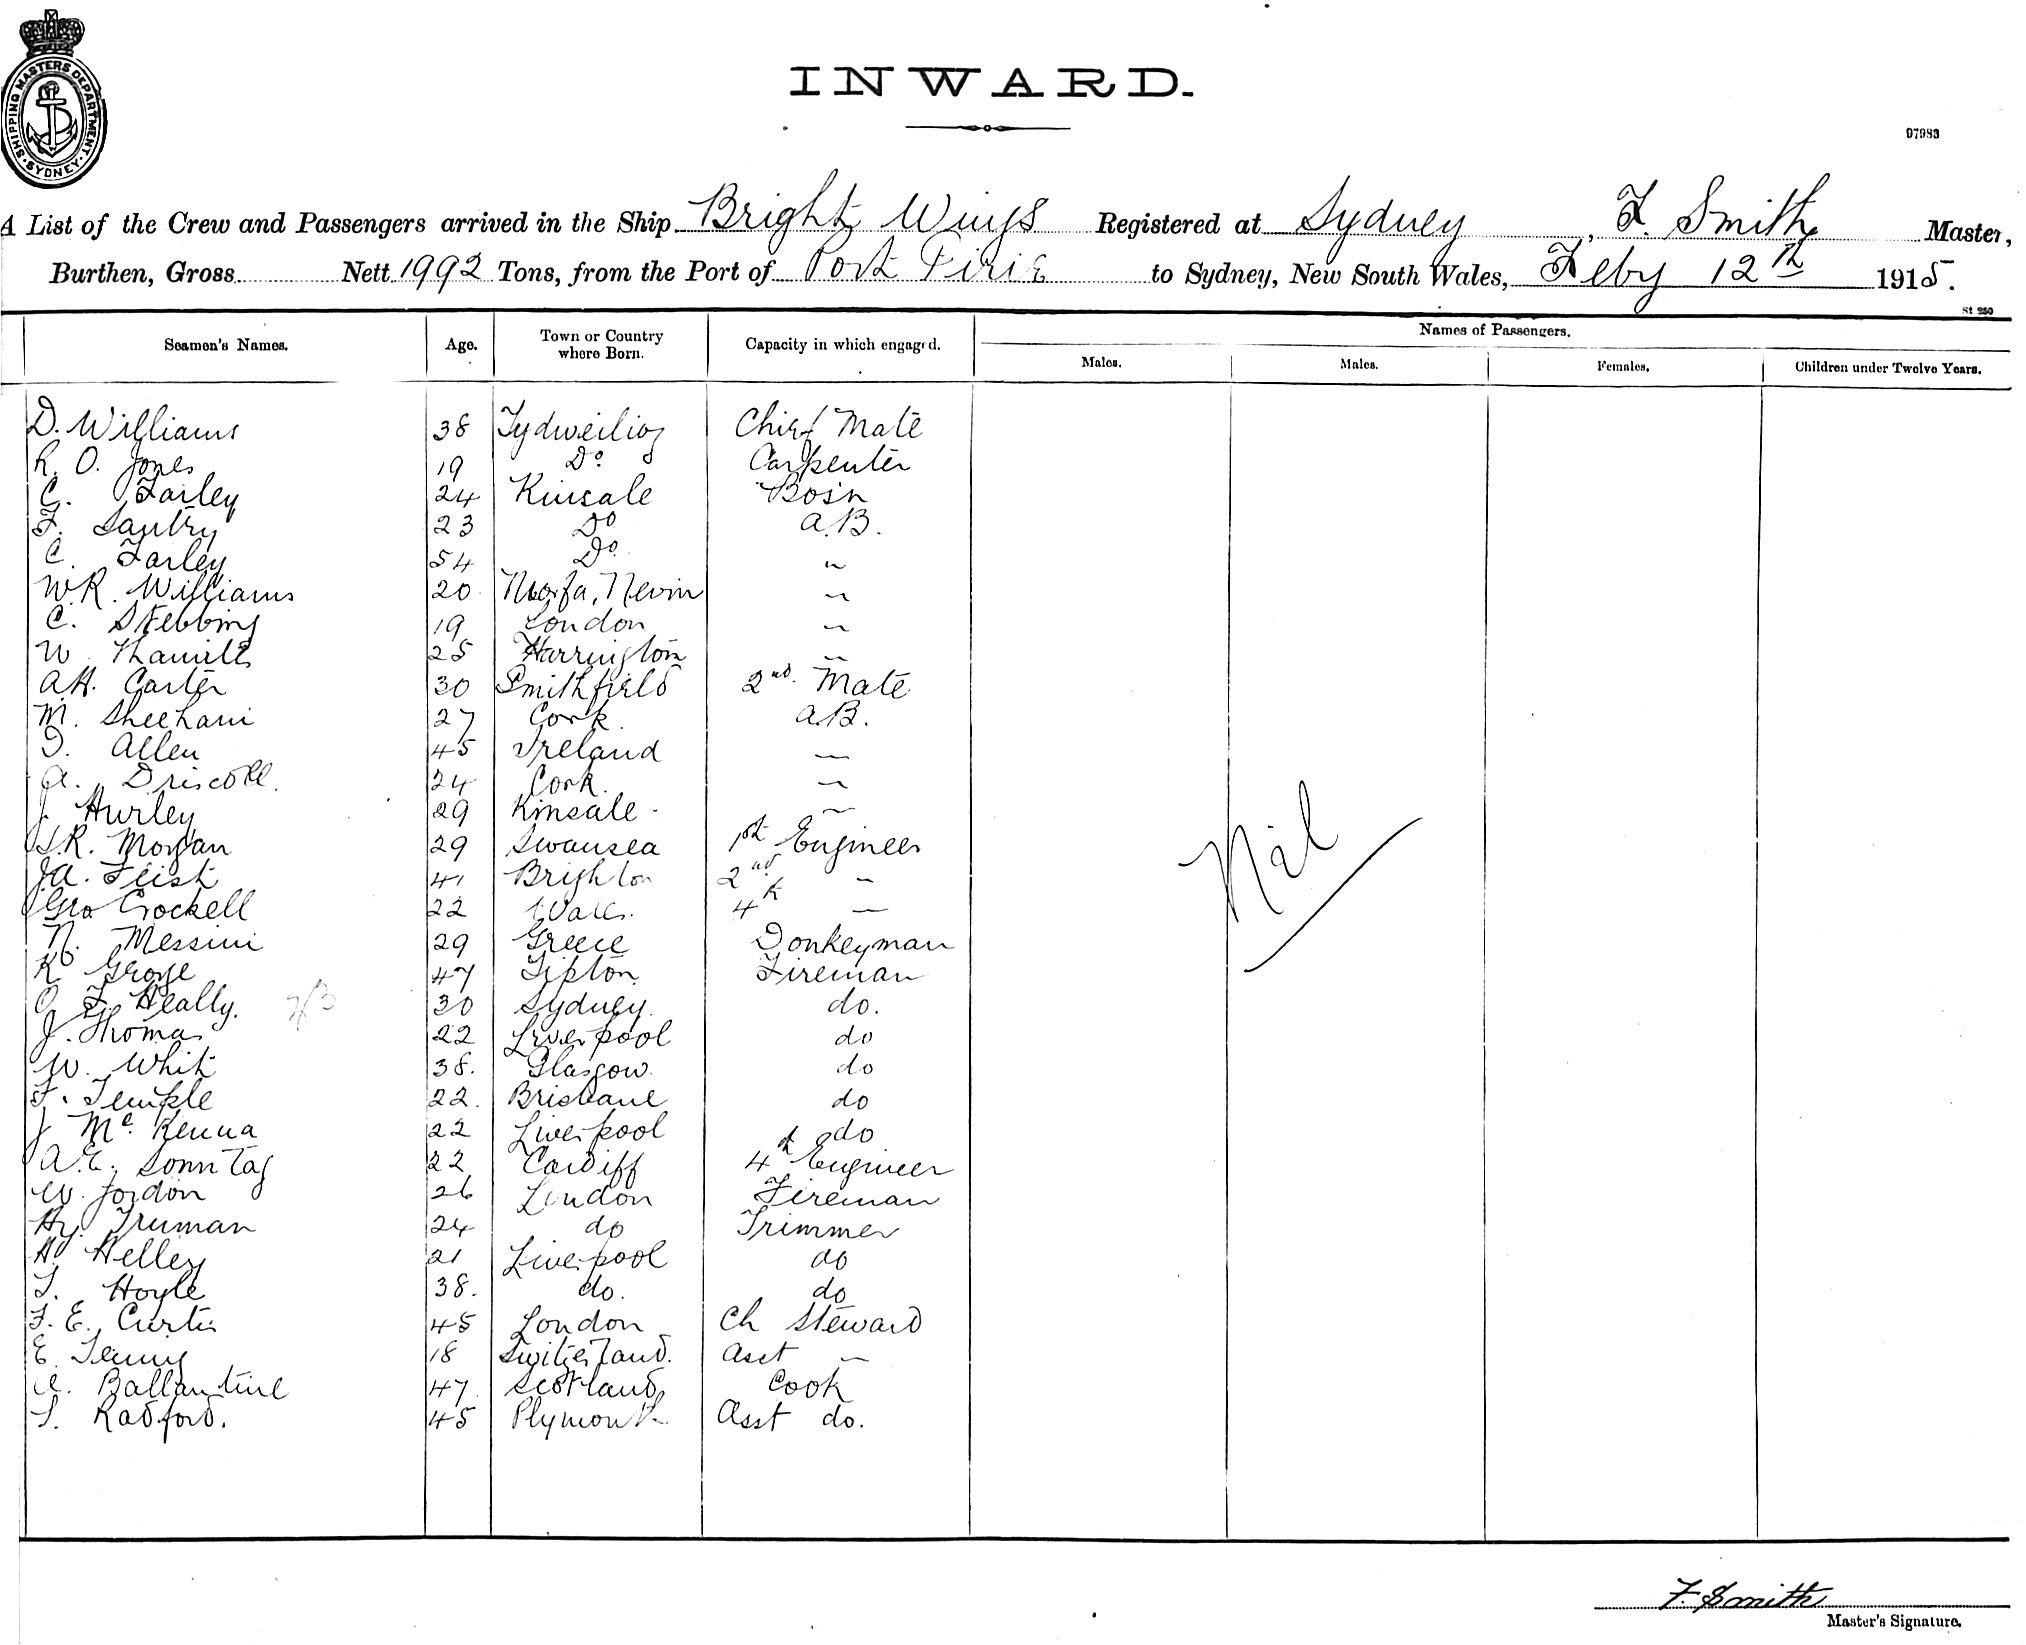 SHIPPING MASTERS DEPARTMENT SYDNEY
INWARD.
97983
A List of the Crew and Passengers arrived in the Ship Bright Wings Registered at Sydney, F. Smith Master,
Burthen, Gross Nett 1992 Tons, from the Port of Port Pirie to Sydney, New South Wales, Feby 12th 1915.
St 250
Seamen's Names. Age. Town or Country where Born. Capacity in which engaged. Names of Passengers.
Males. Males. Females. Children under Twelve Years.
D. Williams 38 Chief Mate
R. O. Jones 19 Do. Carpenter
C. Farley 24 Kinsale Bosn
F. Santry 23 Do A.B.
C. Farley 54 Do "
W.R. Williams 20 Morfa, Nevin "
C. Stebbing 19 London "
W. 25 Harrington "
A.H. Carter 30 Smithfield 2nd. Mate
M. Sheehan 27 Cork. A.B.
Allen 45 Ireland "
A. Driscoll. 24 Cork. "
J. Hurley 29 Kinsale "
R. Morgan 29 Swansea 1st Engineer
J.A. Feist 41 Brighton 2nd "
Geo Crockell 22 Wales. 4th "
Nil
N. Messini 29 Greece Donkeyman
47 Tipton. Fireman
F. Heally. 30 Sydney. do.
J. Thomas 22 Liverpool do
W. Whit 38. Glasgow. do
F. Temple 22. Brisbane do
J McKenna 22 Liverpool do
A.E. Sonntag 22 Cardiff 4th Engineer
W. Jordon 26 London Fireman
Hy. Truman 24 do Trimmer
H. Helley 21 Liverpool do
Hoyle 38. do. do
F. E. Curtis 45 London Ch Steward
E. 18 Switzerland. Asst "
Ballantine 47. Scotland Cook
Radford. 45 Plymouth Asst do.
F. Smith
Master's Signature.